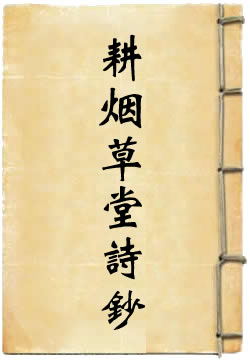 耕烟草堂詩鈔